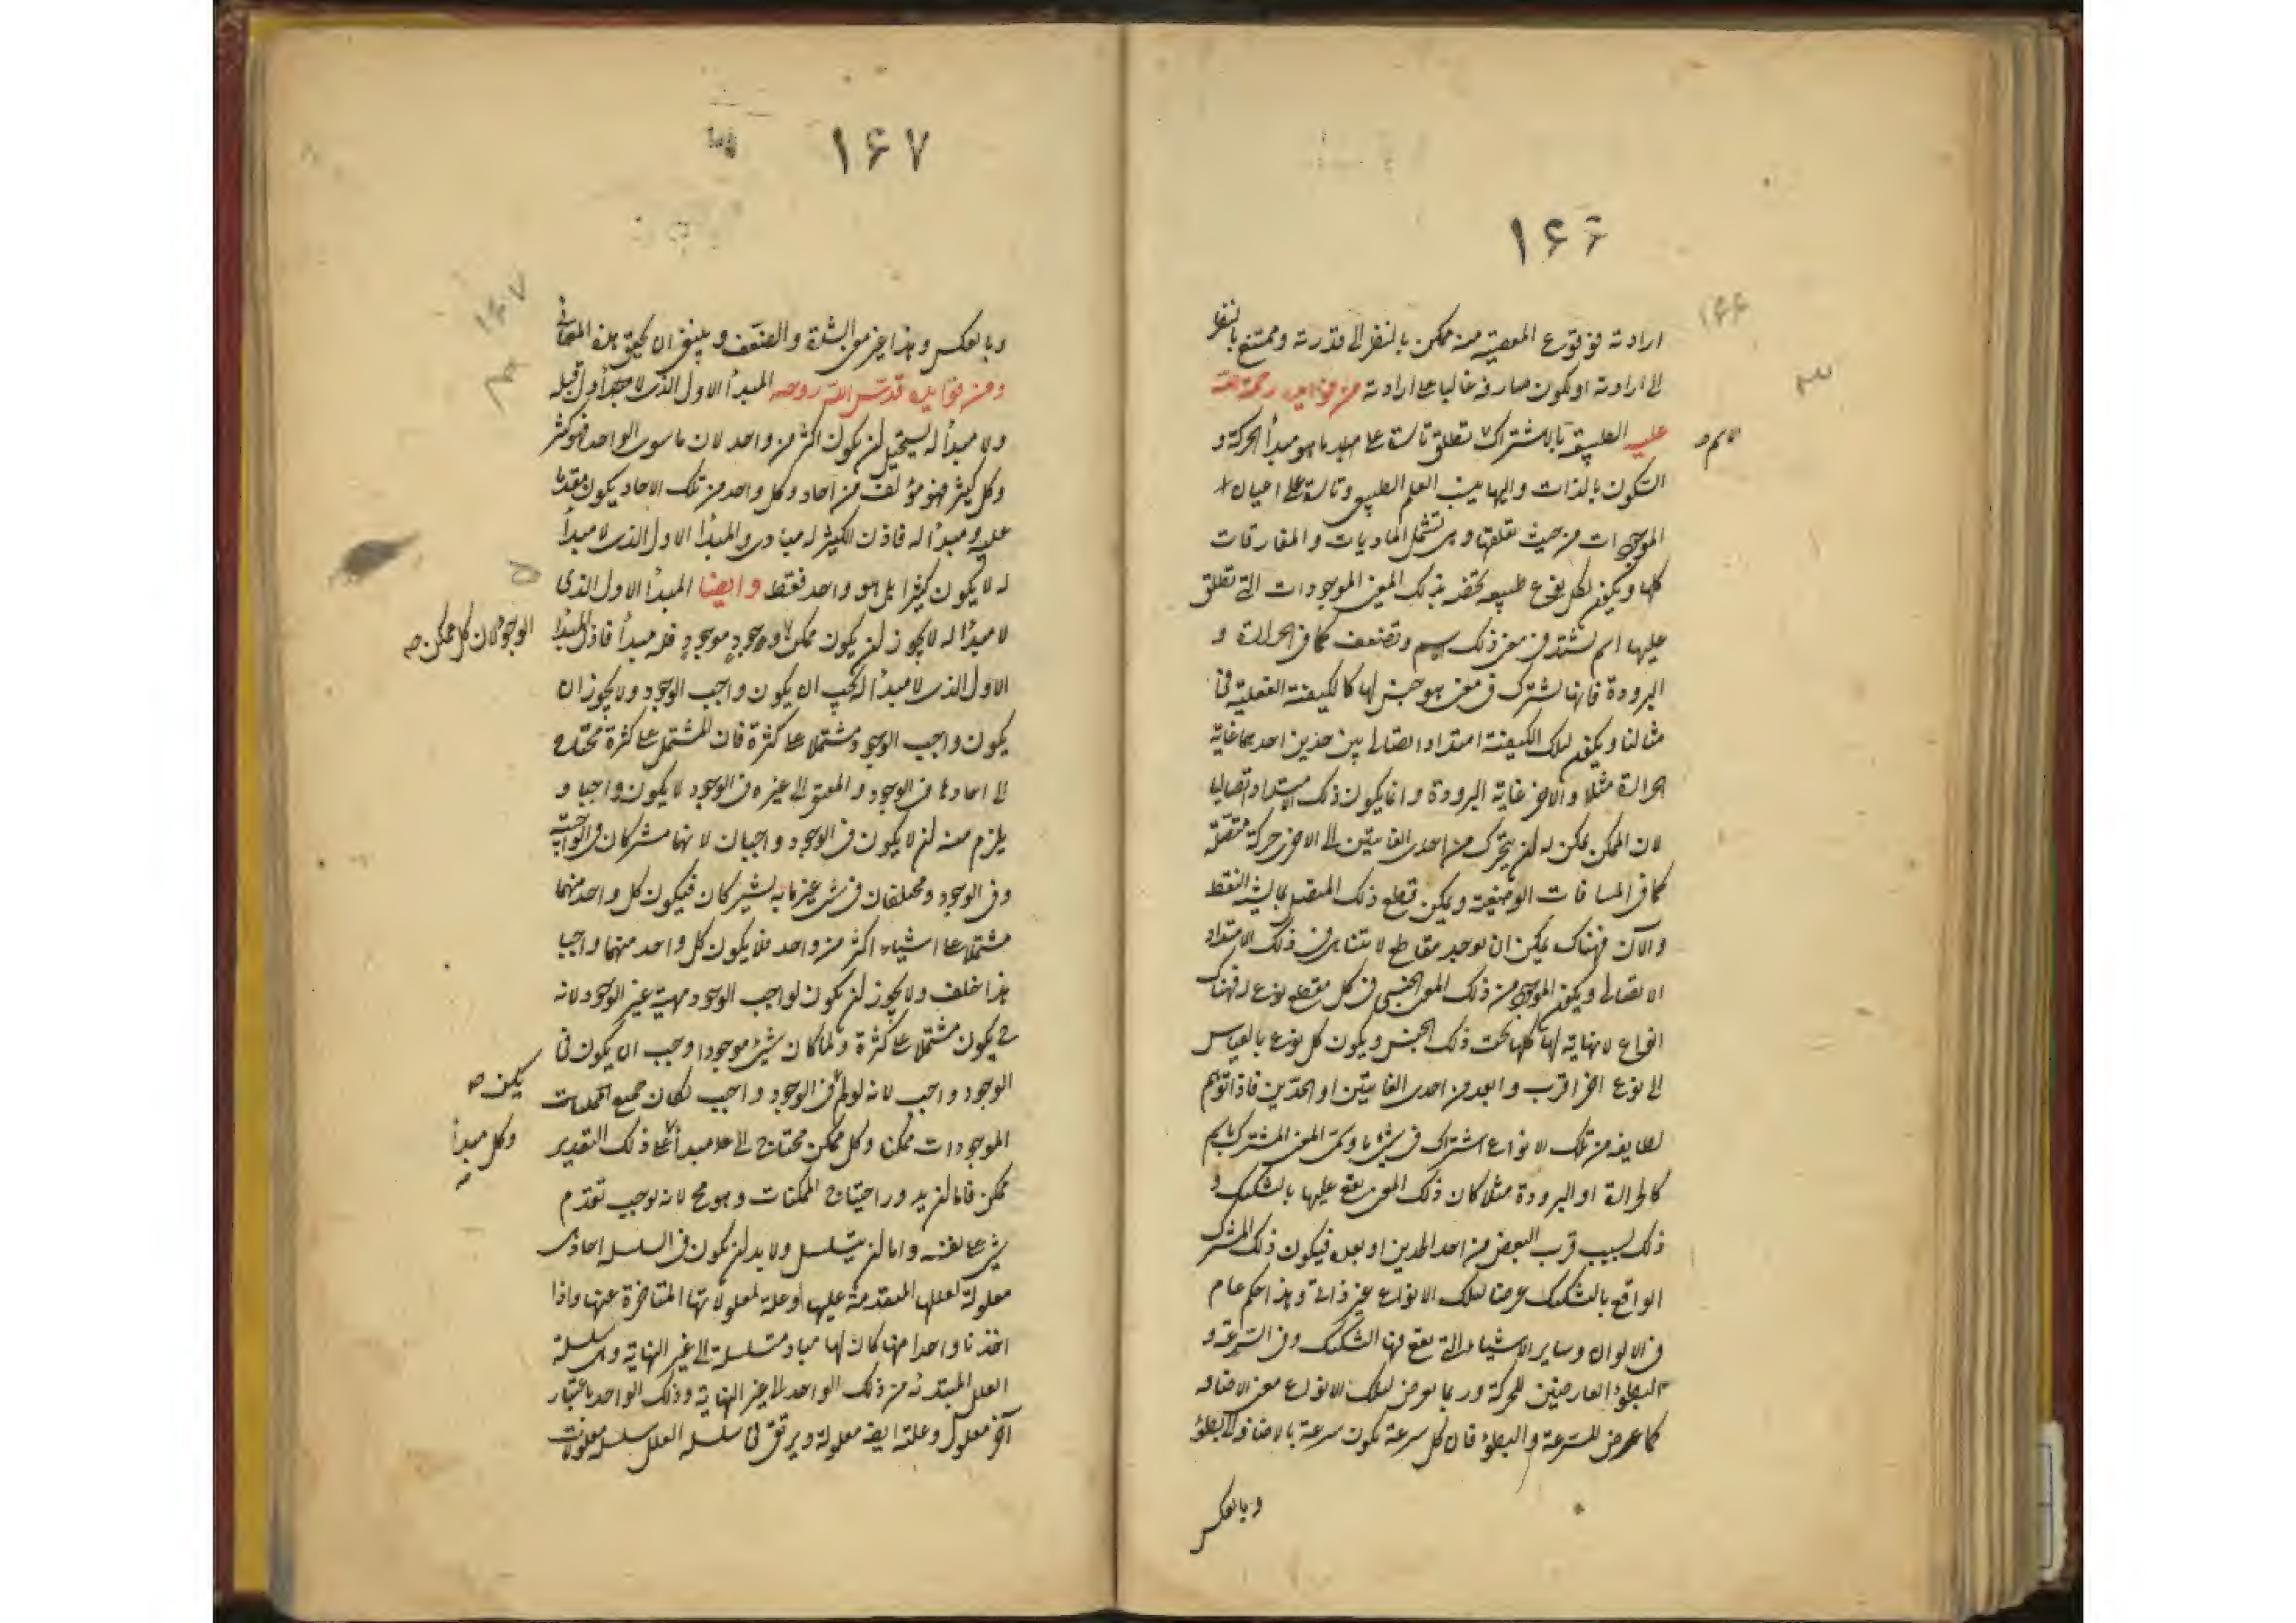 ۱۶۶
ارادته فوقوع المعصية منه ممكن بالنظر الى قدرته وممتنع بالنظر
الى ارادته او يكون صارفه غالبا على ارادته من فوايده رحمة الله
عليه الطبيعة بالاشتراك تطلق تارة على مبدأ ما هو مبدأ الحركة و
السكون بالذات واليها ينسب العلم الطبيعى وتارة على اعيان
الموجودات من حيث تعلقها وهى تشمل الماديات والمفارقات
كلها ويكون لكل نوع طبيعة تخصه بذلك المعنى الموجودات التى تطلق
عليها اسم تشتد فى معنى ذلك وتضعف كما فى الحرارة و
البرودة فانها تشترك فى معنى هو جنس لها كالكيفية الفعلية فى
مثالنا ويكون لتلك الكيفية امتداد اتصالى بين حدين احدهما غاية
الحرارة مثلا والاخر غاية البرودة وانما يكون ذلك الامتداد اتصاليا
لان الممكن يمكن له ان يتحرك من احدى الغايتين الى الاخرى حركة متصلة
كما فى المسافات الوضعية ويمكن قطع ذلك المتصل بما يشبه النقط
والآن فهناك يمكن ان يوجد مقاطع لا يتناهى فى ذلك الامتداد
الاتصالى ويكون الموجود من ذلك المعنى الجنسى فى كل مقطع نوعا فهناك
انواع لا نهاية لها كلها تحت ذلك الجنس ويكون كل نوع بالقياس
الى نوع اخر اقرب وابعد من احدى الغايتين او الحدين فاذا توهم
لطايفة من تلك الانواع اشتراك فى شئ ما وسمى المعنى المشترك باسم
كالحرارة او البرودة مثلا كان ذلك المعنى يقع عليها بالتشكيك و
ذلك بسبب قرب البعض من احد الحدين او بعده فيكون ذلك المشترك
الواقع بالتشكيك عرضا لتلك الانواع غير ذاتى وهذا حكم عام
فى الالوان وساير الاشياء التى يقع فيها التشكيك وفى السرعة و
البطؤ العارضين للحركة وربما يعرض لتلك الانواع معنى الاضافه
كما عرض للسرعة والبطؤ فان كل سرعة تكون سرعة بالاضافة الى بطؤ
وبالعكس
۱۶۷
وبالعكس وهذا غير معنى الشدة والضعف وينبغى ان يحقق هذه المعانى
ومن فوايده قدس الله روحه المبدأ الاول الذى لا مبدأ قبله
ولا مبدأ له يستحيل ان يكون اكثر من واحد لان ما سوى الواحد فهو كثير
وكل كثير فهو مؤلف من احاد وكل واحد من تلك الاحاد يكون مقدما
عليه ومبدأ له فاذن الكثير له مبادى والمبدأ الاول الذى لا مبدأ
له لا يكون كثيرا بل هو واحد فقط وايضا المبدأ الاول الذى
لا مبدأ له لا يجوز ان يكون ممكن الوجود موجود فله مبدأ فاذن المبدأ
الوجود لان كل ممكن صه
الاول الذى لا مبدأ له يجب ان يكون واجب الوجود ولا يجوز ان
يكون واجب الوجود مشتملا على كثرة فان المشتمل على كثرة محتاج
الى احادها فى الوجود والمفتقر الى غيره فى الوجود لا يكون واجبا و
يلزم منه ان لا يكون فى الوجود واجبان لانهما مشتركان فى الواجبية
وفى الوجود ومختلفان فى شئ غير ما به يشتركان فيكون كل واحد منهما
مشتملا على اشياء اكثر من واحد فلا يكون كل واحد منهما واجبا
هذا خلف ولا يجوز ان يكون لواجب الوجود مهية غير الوجود لانه
ح يكون مشتملا على كثرة ولما كان شئ موجودا وجب ان يكون فى
الوجود واجب لانه لو لم فى الوجود واجب لكان جميع
يكن صه
الموجودات ممكنا وكل ممكن محتاج الى مبدأ على ذلك التقدير
وكل مبدأ
صه
ممكن فاما ان يدور احتياج الممكنات وهو مح لانه يوجب تقدم
شئ على نفسه واما ان يتسلسل ولا بد ان يكون فى السلسلة احاد هى
معلولة لعللها المتقدمة عليها وعلة لمعلولاتها المتاخرة عنها واذا
اخذنا واحدا منها كان لها مباد متسلسلة الى غير النهاية وهى سلسلة
العلل المبتدئة من ذلك الواحد الى غير النهاية وذلك الواحد باعتبار
آخر معلول وعلته ايضا معلولة ويرتقى فى سلسلة العلل سلسلة معلولات